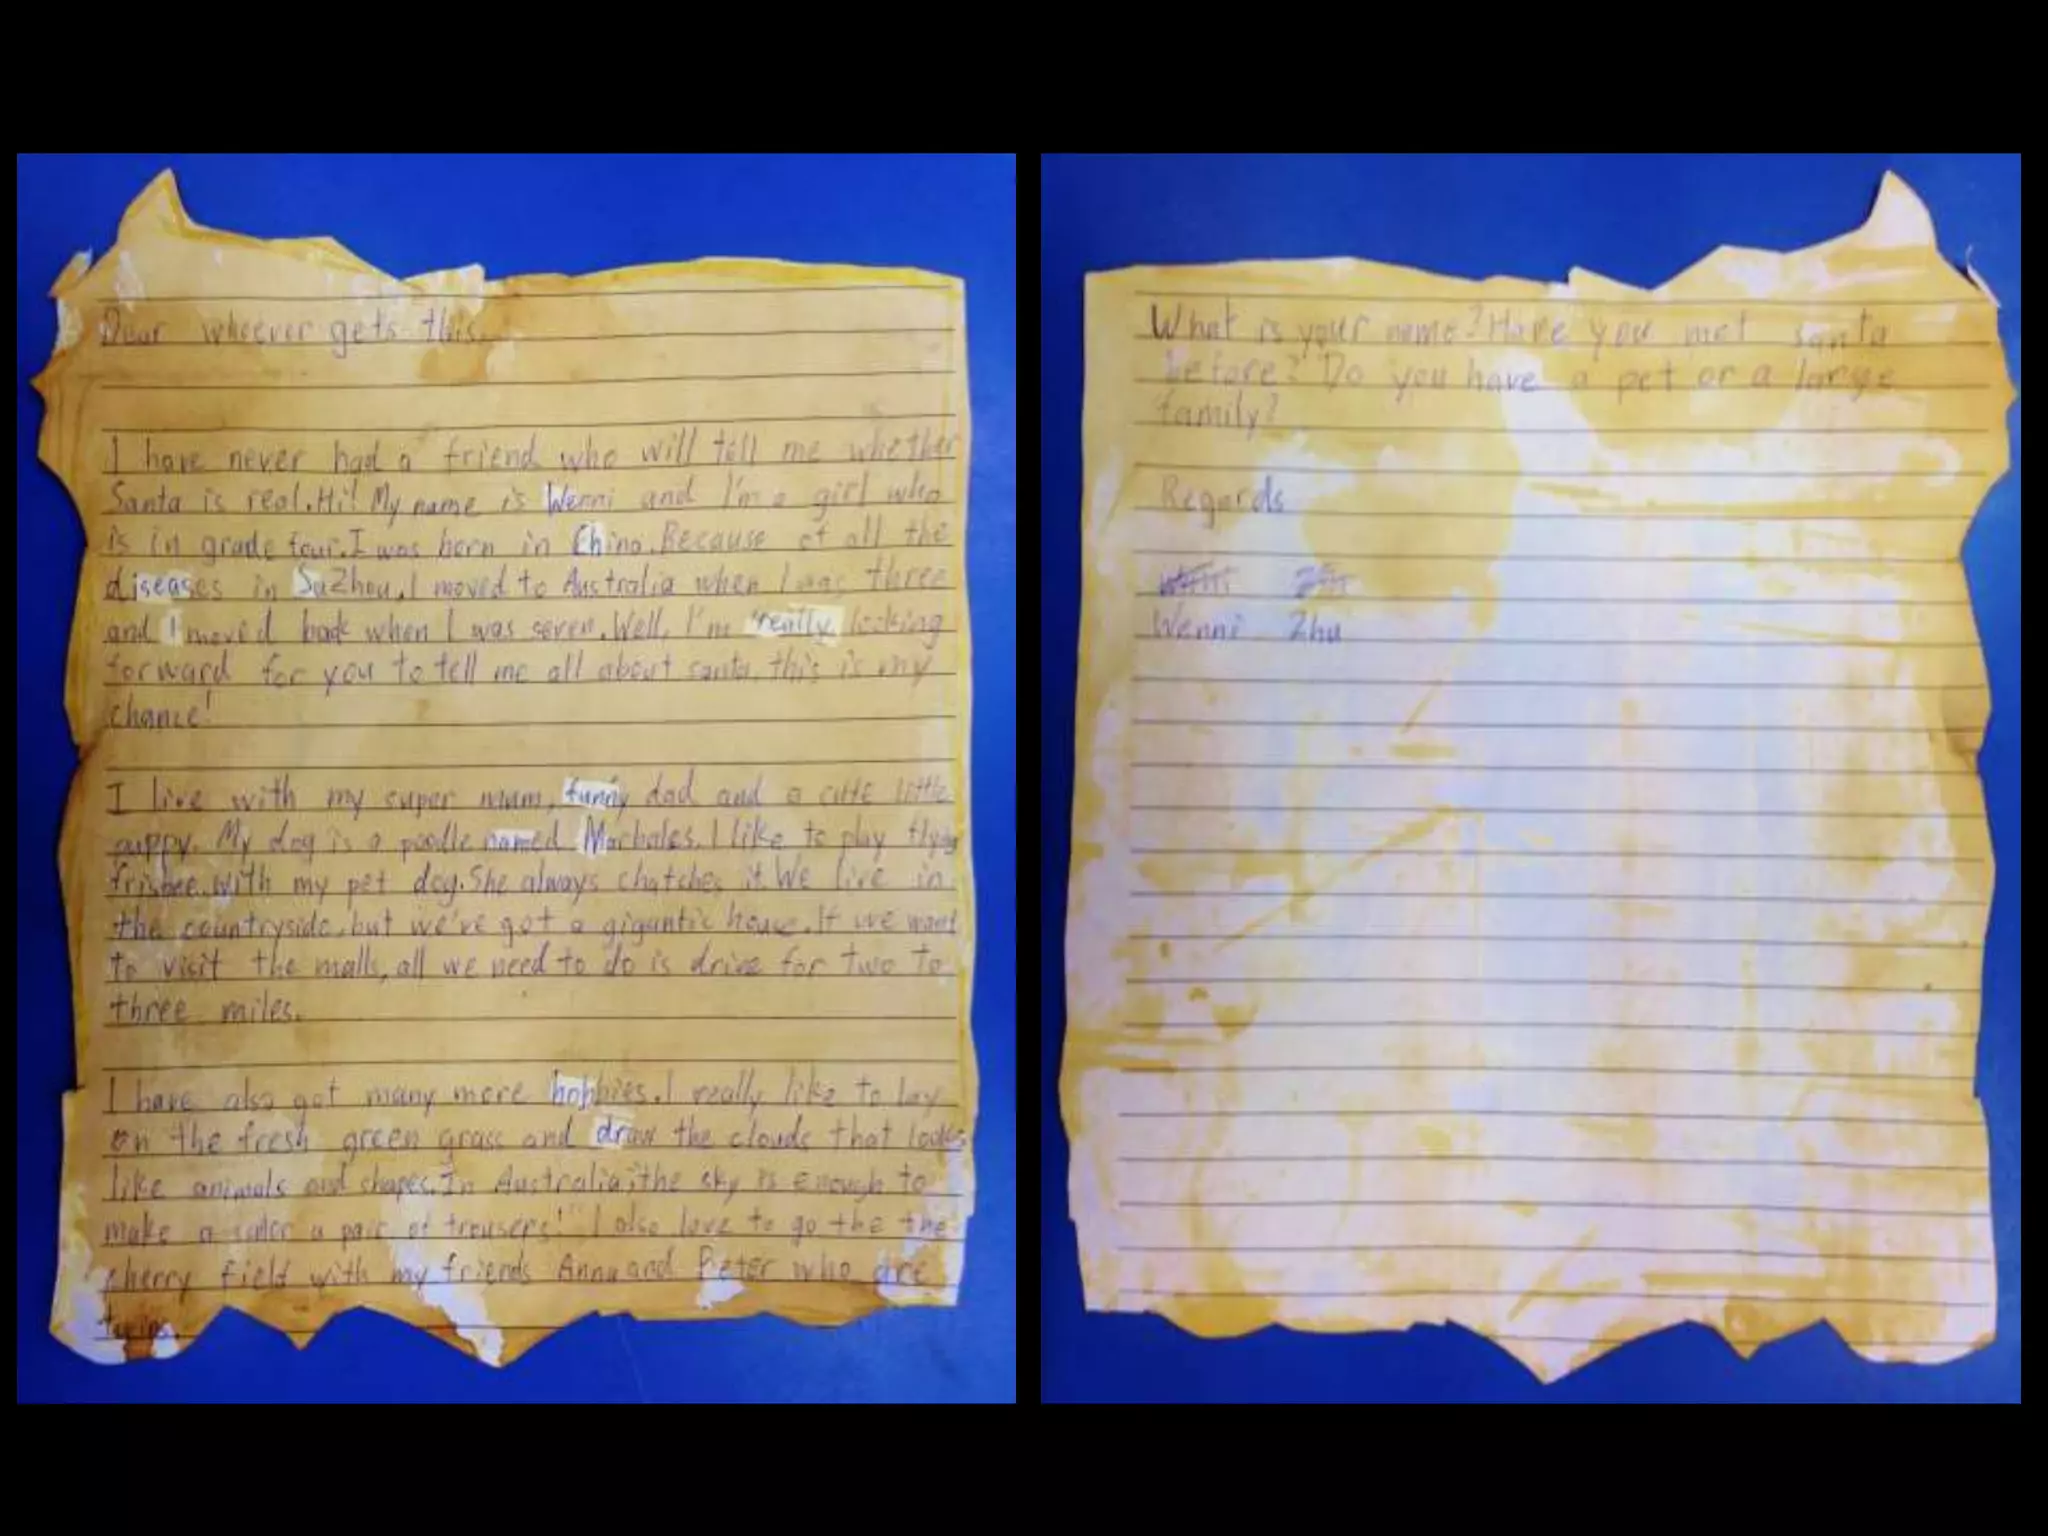 Dear whoever gets this.
I have never had a friend who will tell me whether
Santa is real. Hi! My name is Wenni and I'm a girl who
is in grade four. I was born in China. Because of all the
diseases in SuZhou, I moved to Australia when I was three
and I moved back when I was seven. Well, I'm really looking
forward for you to tell me all about santa, this is my
chance!
I live with my super mum, funny dad and a cute little
puppy. My dog is a poodle named Marbales. I like to play flying
frisbee with my pet dog. She always chatches it. We live in
the countryside, but we've got a gigantic house. If we want
to visit the malls, all we need to do is drive for two to
three miles.
I have also got many more hobbies. I really like to lay
on the fresh green grass and draw the clouds that looks
like animals and shapes. In Australia, "the sky is enough to
make a sailor a pair of trousers!" I also love to go the the
cherry field with my friends Anna and Peter who are
twins.
What is your name? Have you met santa
before? Do you have a pet or a large
family?
Regards
Wenni Zhu